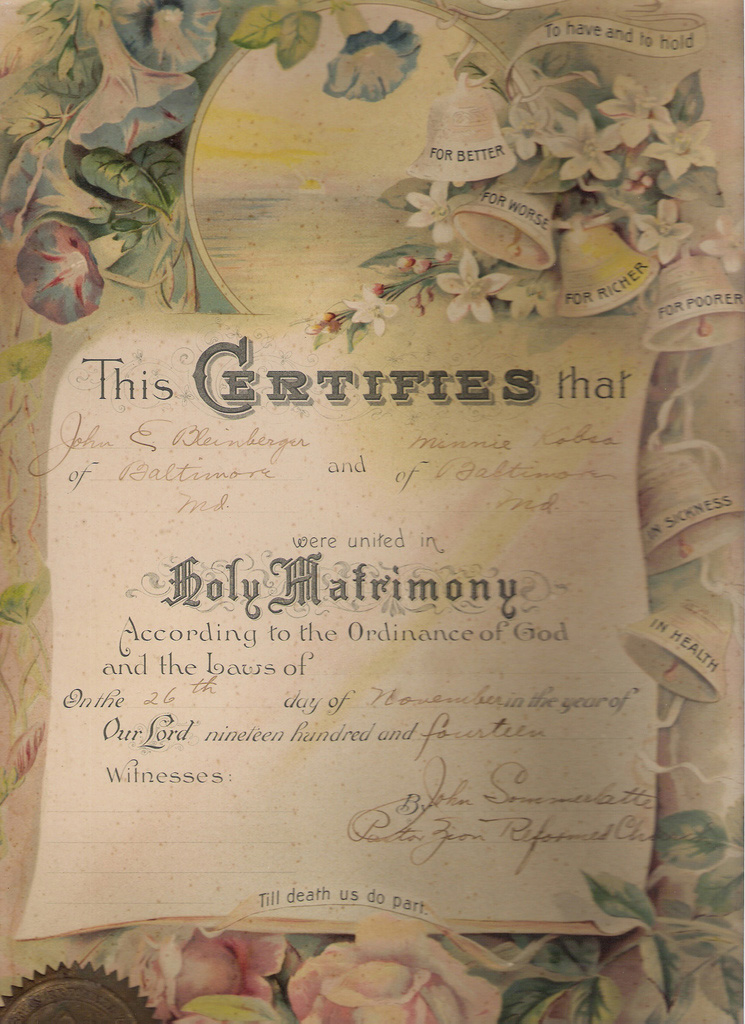 To have and to hold
FOR BETTER
FOR WORSE
FOR RICHER
FOR POORER
IN SICKNESS
IN HEALTH
This CERTIFIES that
John E Bleinberger
of Baltimore
Md.
and
Minnie
of Baltimore
Md.
were united in
Holy Matrimony
According to the Ordinance of God
and the Laws of
On the 26th day of November in the year of
Our Lord nineteen hundred and fourteen
Witnesses:
By John Sommerlatte
Pastor Zion Reformed
Till death us do part.